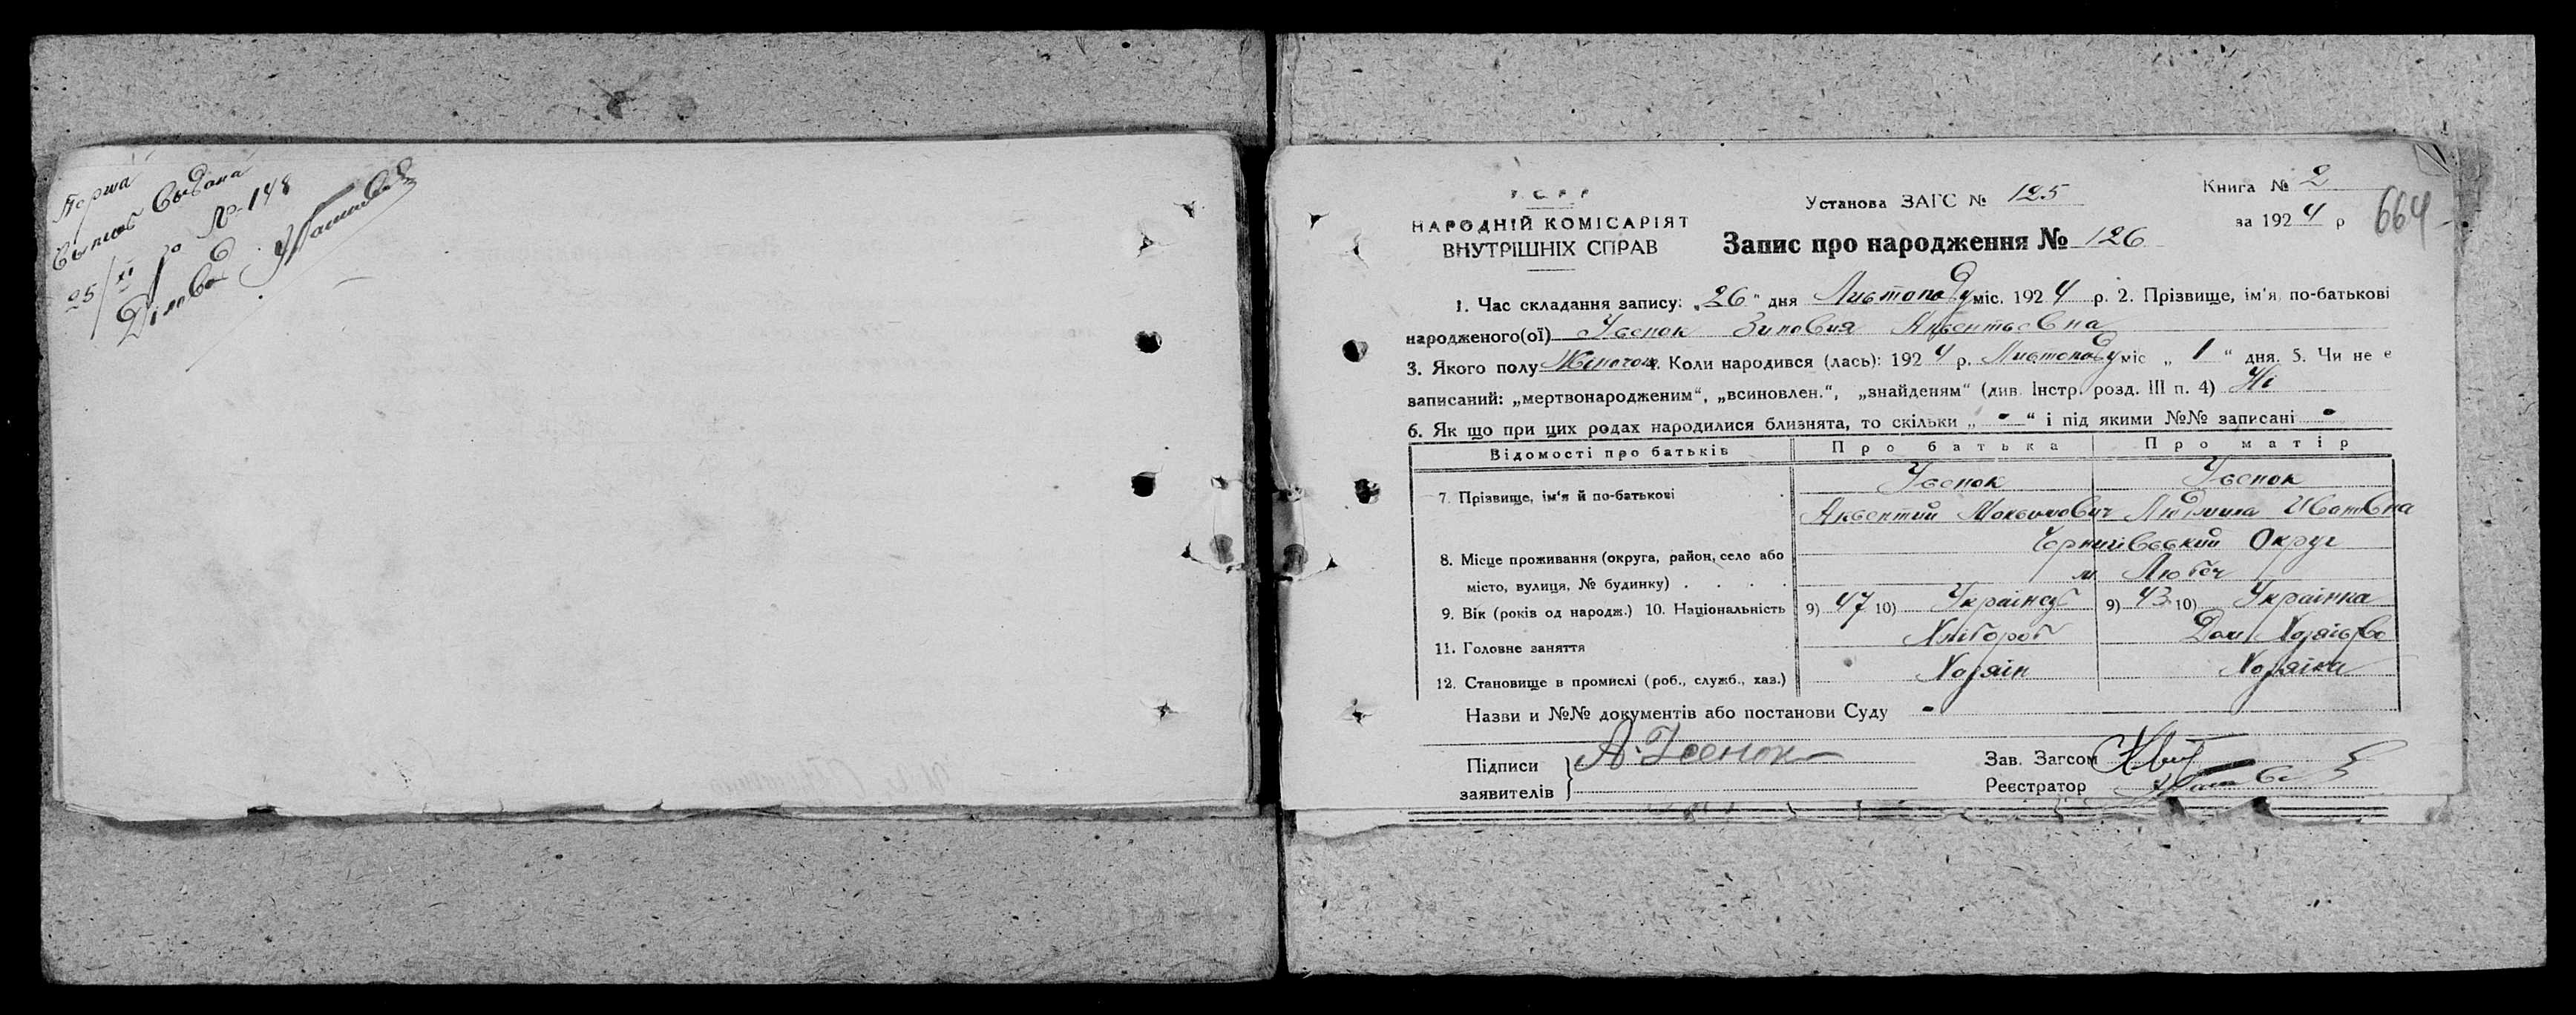 Перша
выпись выдана
25/XI за № 148
Діловод
У.С.Р.Р.
НАРОДНІЙ КОМІСАРІЯТ
ВНУТРІШНІХ СПРАВ
Установа ЗАГС № 125
Книга № 2
за 1924 р
664
Запис про народження № 126
1. Час складання запису: „26“ дня Листопаду міс. 1924 р. 2. Прізвище, ім'я, по-батькові
народженого(ої) Усенок Зиновия Аксентьевна
3. Якого полу Женочого 4. Коли народився (лась): 1924 р. Листопаду міс „1“ дня. 5. Чи не є
записаний: „мертвонародженим“, „всиновлен.“, „знайденям“ (див. Інстр. розд. III п. 4) Ні
6. Як що при цих родах народилися близнята, то скільки „-“ і під якими №№ записані -
Відомості про батьків Про батька Про матір
7. Прізвище, ім'я й по-батькові Усенок Усенок
Аксентий Максимович Людмила Ивановна
8. Місце проживання (округа, район, село або Чернигівський Округ
місто, вулиця, № будинку) . . . . м Любеч
9. Вік (років од народж.) 10. Національність 9) 47 10) Українець 9) 43 10) Українка
11. Головне заняття Хлібороб Дом Хозяйство
12. Становище в промислі (роб., служб., хаз.) Хозяін Хозяйка
Назви и №№ документів або постанови Суду -
Підписи А. Усенок
заявителів
Зав. Загсом
Реєстратор